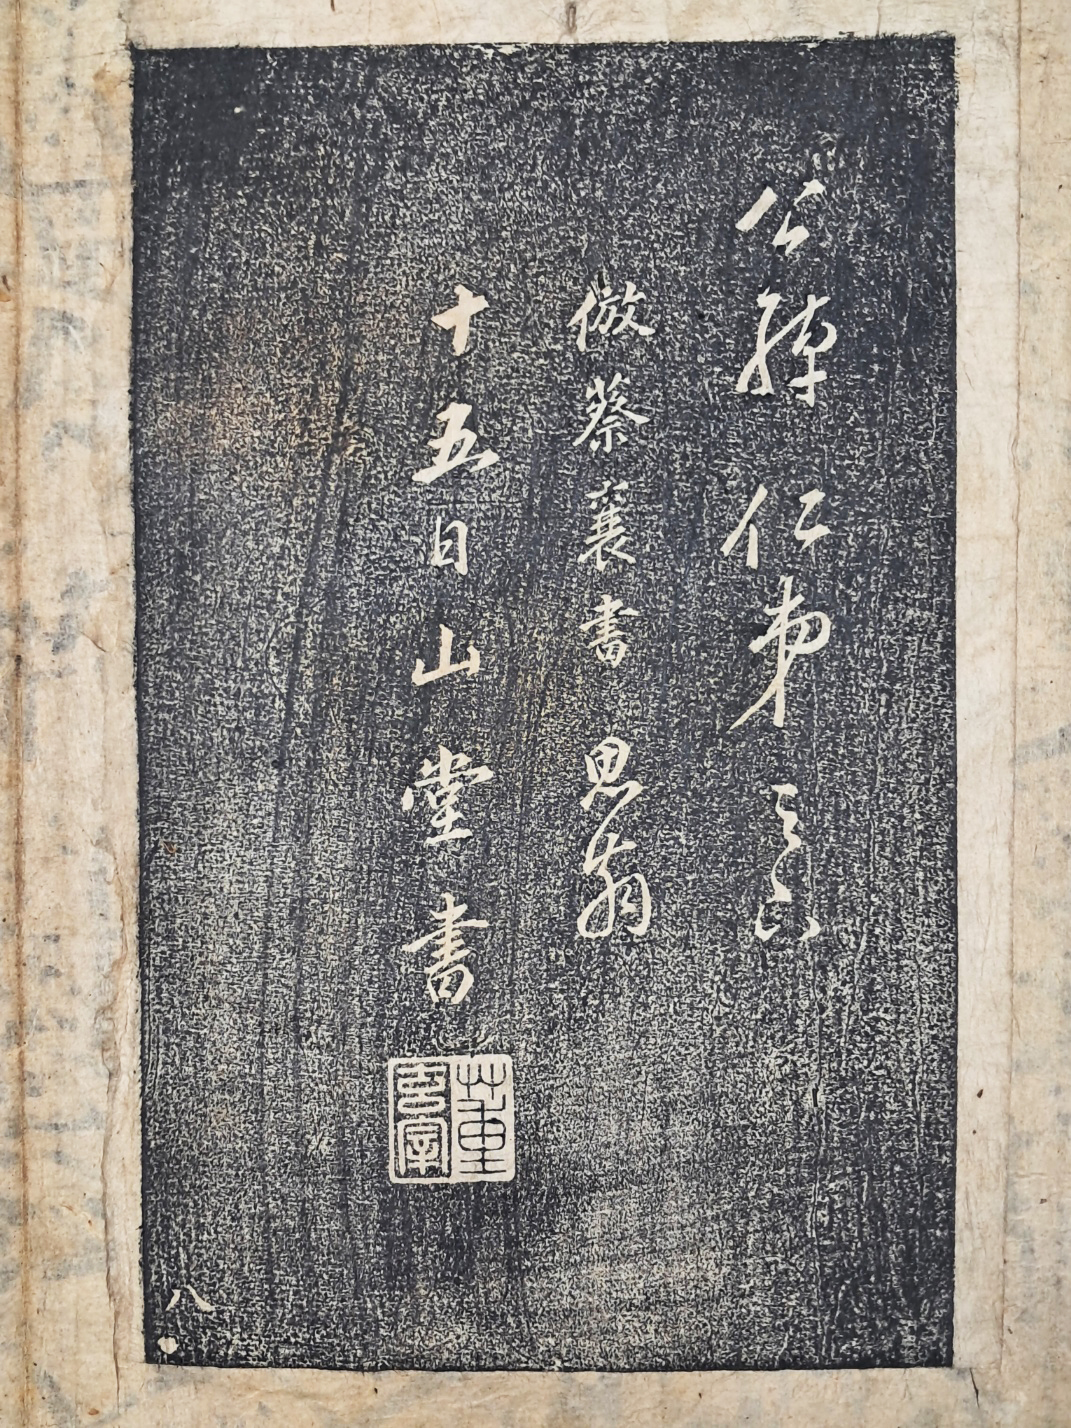 公綽仁弟
倣蔡襄書 思翁
十五日山堂書
八